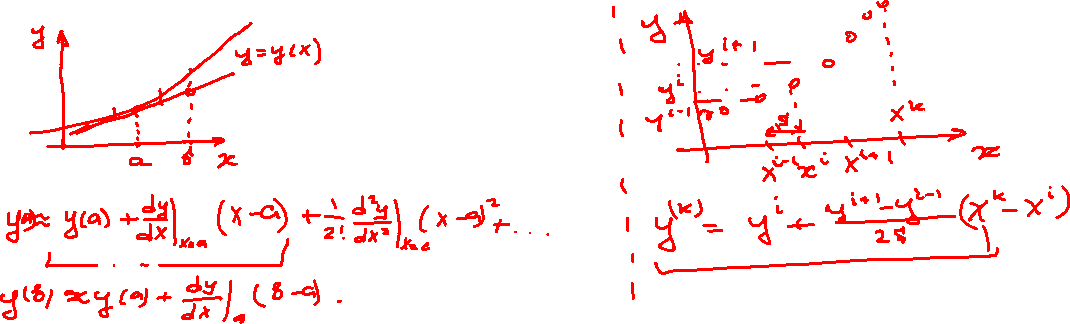 y
y=y(x)
a b x
y(x)≈ y(a) + dy/dx|x=a (x-a) + 1/2! d²y/dx²|x=a (x-a)² + ...
y(b) ≈ y(a) + dy/dx|a (b-a).
y
y^{i+1}
y^i
y^{i-1}
δ
x^k
x^{i-1} x^i x^{i+1} x
y^{(k)} = y^i + (y^{i+1} - y^{i-1})/2δ (x^k - x^i)